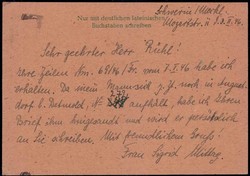 Nur mit deutschen lateinischen
Buchstaben schreiben
Schwerin/Meckl.
Mozartstr.
Sehr geehrter Herr Rühl!
Ihre Zeilen Nr. 69/46/ vom 7.I.46 habe ich
erhalten. Da mein Mann sich z.Z. noch in Augus-
dorf b. Detmold, aufhält, habe ich Ihren
Brief ihm hingesandt und wird er persönlich
an Sie schreiben. Mit freundlichem Gruß!
Frau Sigrid